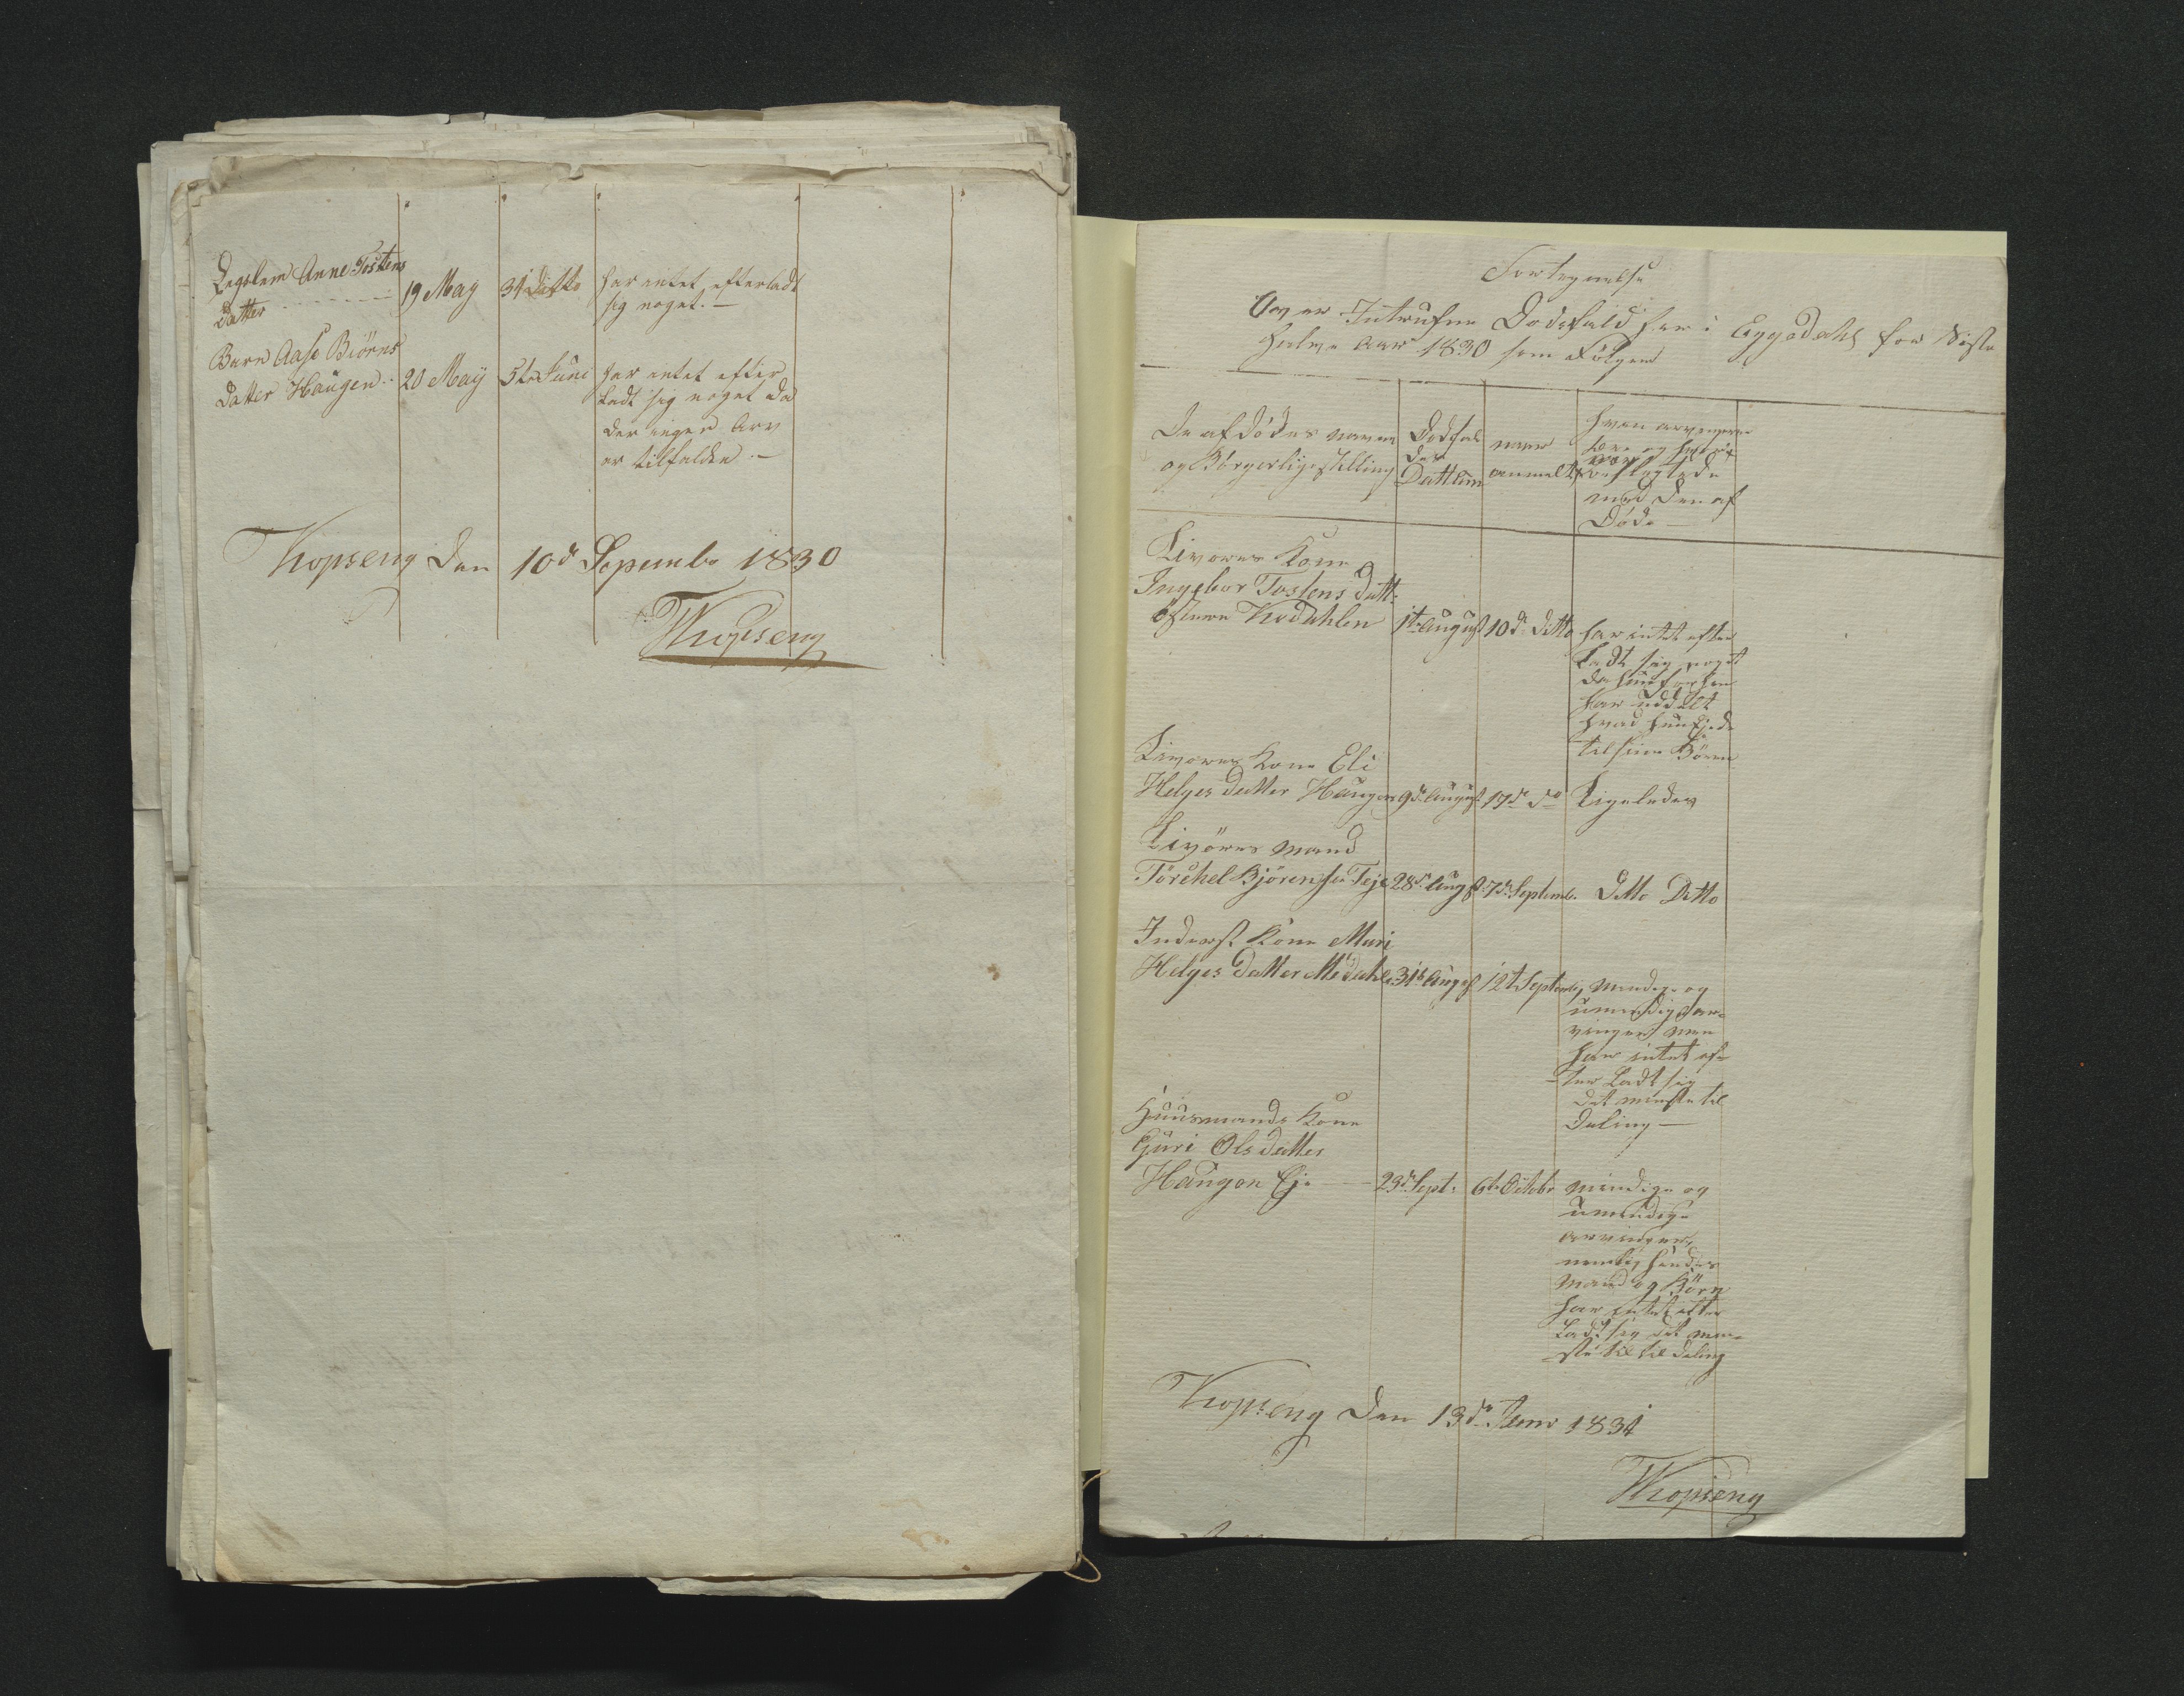 Legslem Anne Tostens
datter - - - - - 19 May 31 Ditto har intet efterladt
sig noget. -
Barn Aase Biörns
datter Haugen - 20 Maij 5te Juni har intet efter
ladt sig noget da
der ingen Arv
er tilfalden. -
Kopseng den 10de Sepembr 1830
TKopseng
Fortegnelse
Over Intrufne Dødsfald her i Eggedahl for Siste
halve Aar 1830 som Følger
De afdødes navne
og Borgerlige stilling
Dødsfal
des
Dattum
naar
anmelt
hvem arvingerne
ere og hvor
nær
beslægtede
med den af
Døde
Livøres Kone
Ingebor Tostens datt:
østerne Kodahlen 1te August 10de ditto har intet efter
Ladt sig noget
da hun forhen
har uddelt
hvad hun Ejede
til sine Børen
Livøres Kone Eli
Helges datter Haugen 9de August 17de do Ligeledes
Livøres mand
Törchel Bjørensen Teje 28de Augst 7de Septembr Ditto Ditto
Inderst Kone Mari
Helges datter Medahl 31te August 12te Septembr mindige og
umindige Ar-
vinger men
har intet ef-
ter Ladt sig
det minste til
Deling -
Huusmands Kone
Guri Olsdatter
Haugen Eje - 23de Sept: 6te Octobr mindige og
umindige
arvinger,
nemlig hendes
mand og Börn
har intet efter
Ladt sig det min-
ste til til deling
Kopseng den 13de Janr 1831
TKopseng